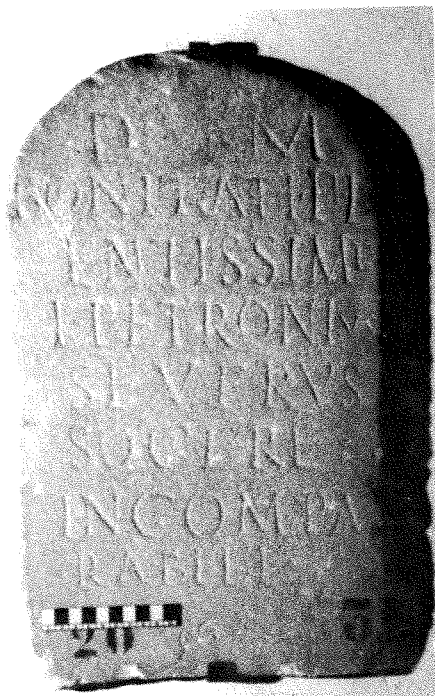 D M
BONITATI PI
ENTISSIM
L PETRONIV
SEVERVS
SOCERE
INCOMPA
RABILE
20